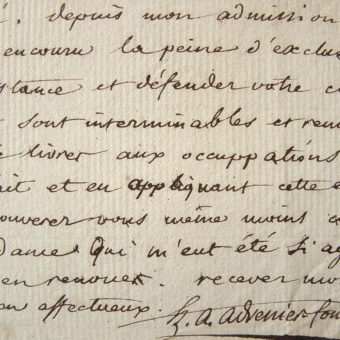 depuis mon admission
encouru la peine d'exclu
stance et défender votre c
sont interminables et renv
livrer aux occuppations
ait et en appliquant cette
ouverer vous même moins
Dame qui m'eut été si ag
en renouer. recever mo
en affectueux.